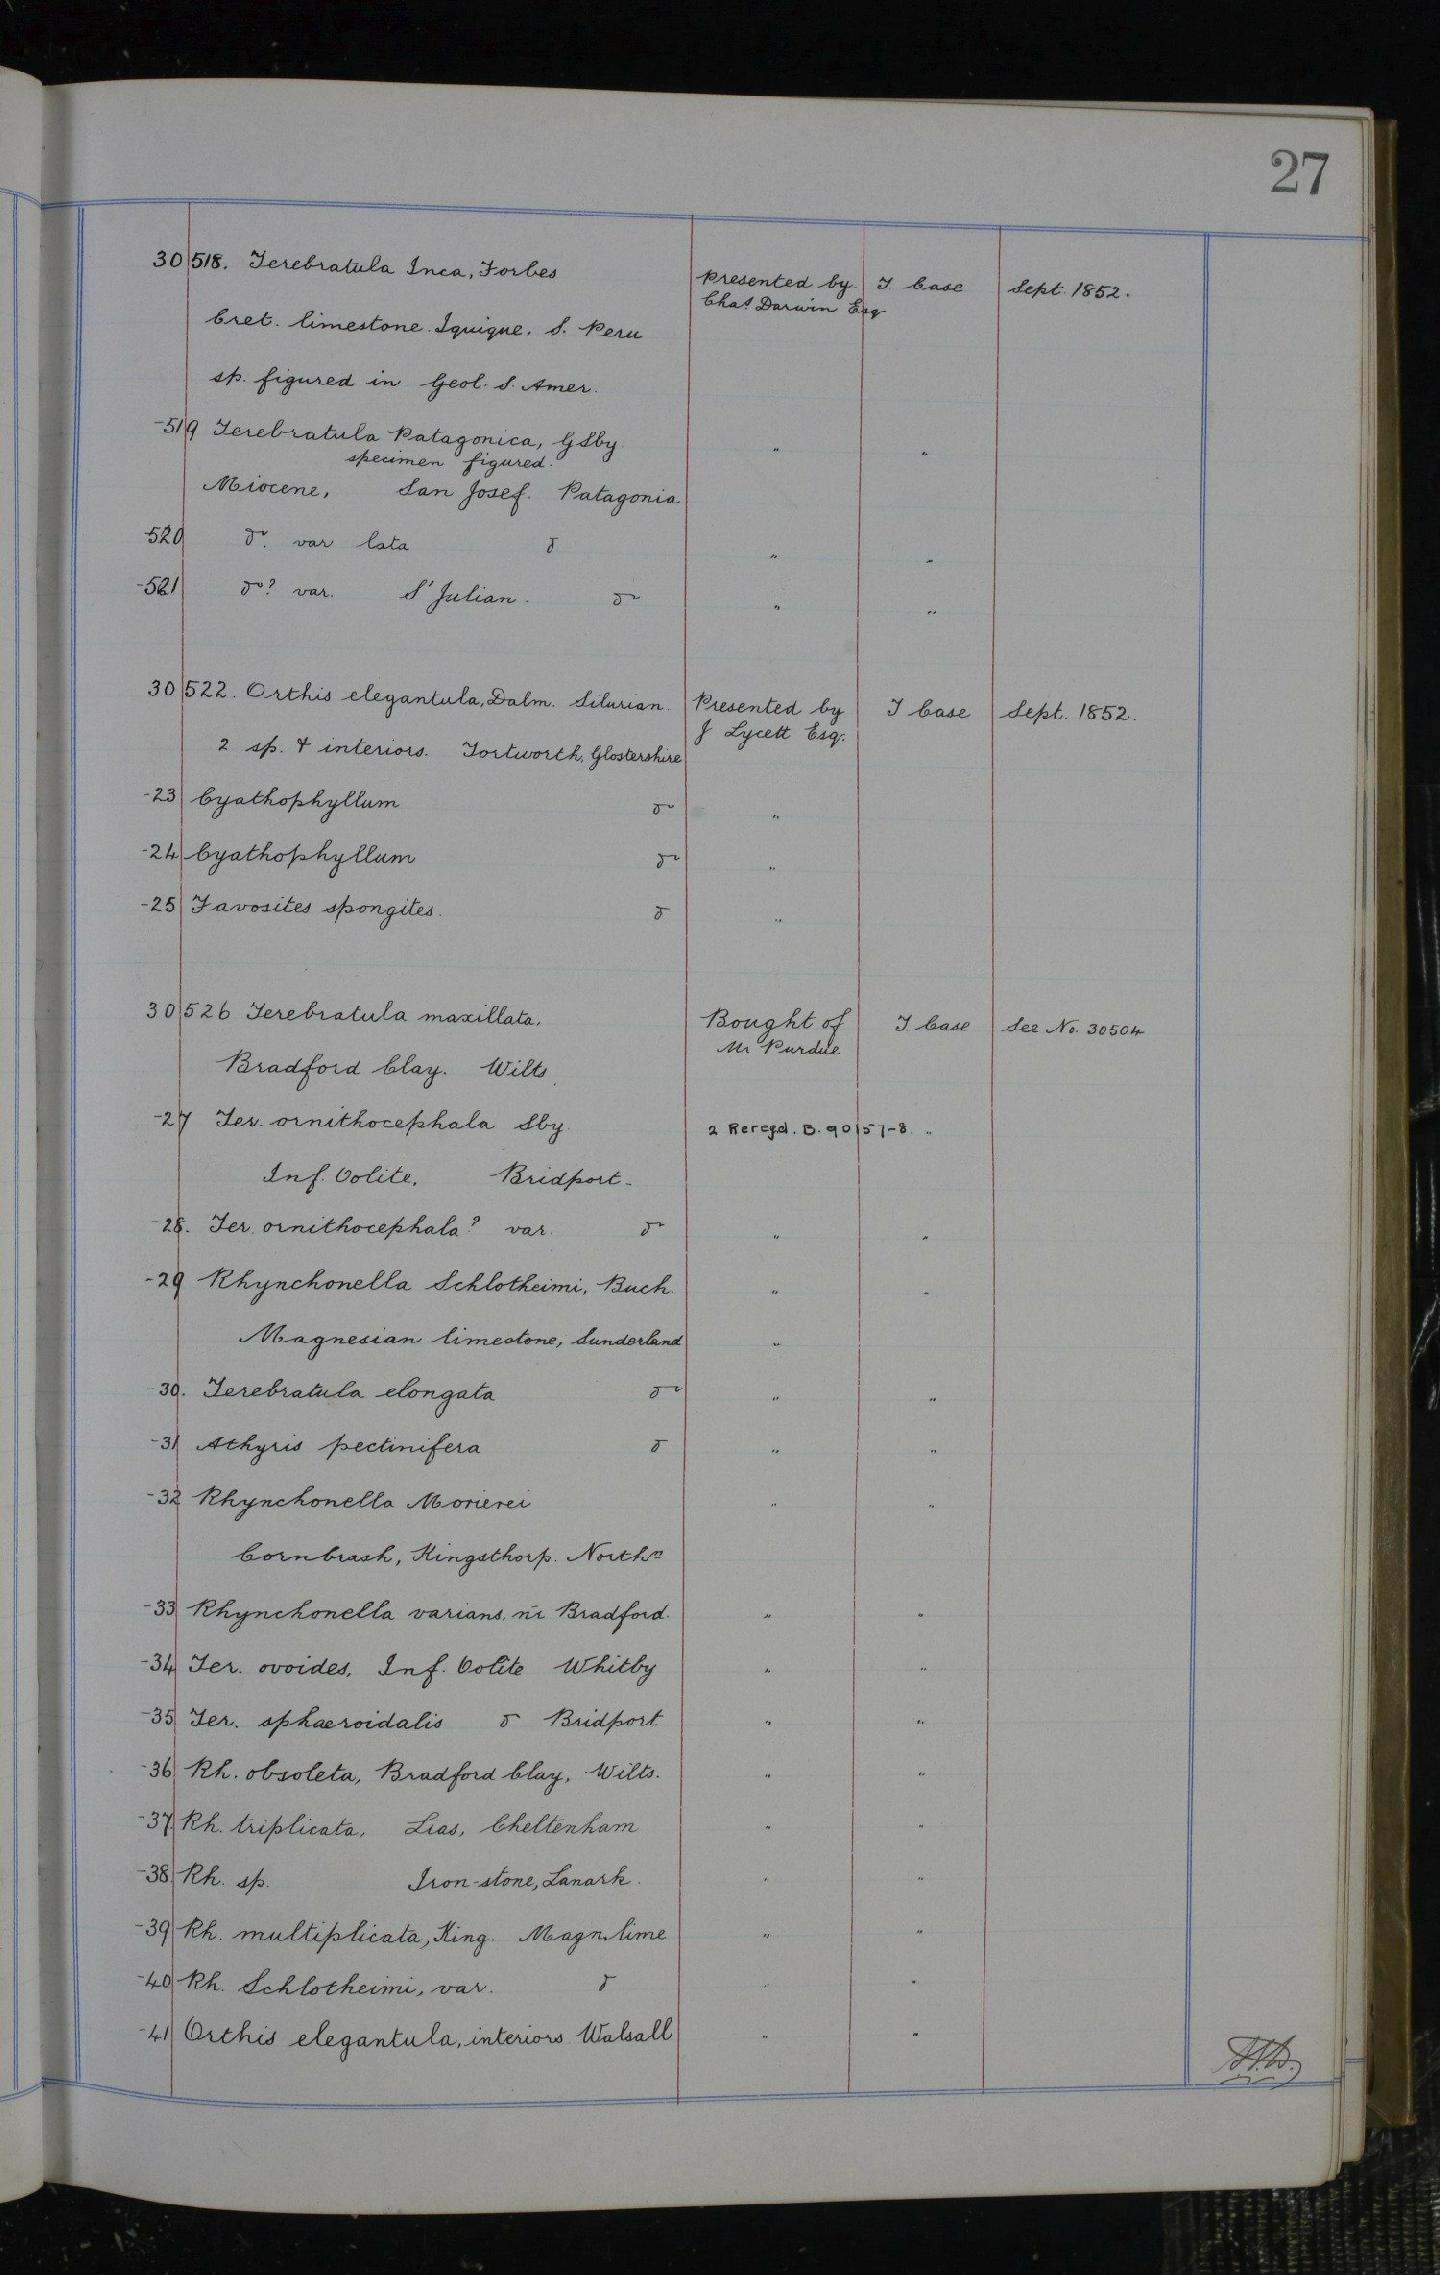 27
30518. Terebratula Inca, Forbes Presented by T Case Sept. 1852.
Chas. Darwin Esq
Cret. limestone. Iquique. S. Peru
sp. figured in Geol. S. Amer.
-519 Terebratula Patagonica, G Sby. " "
specimen figured.
Miocene, San Josef. Patagonia.
520 do. var lata do " "
-521 do? var. St Julian. do " "
30522. Orthis elegantula, Dalm. Silurian. Presented by T Case Sept. 1852.
J Lycett Esq.
2 sp. & interiors. Tortworth, Glostershire
-23 Cyathophyllum do "
-24 Cyathophyllum do "
-25 Favosites spongites. do "
30526 Terebratula maxillata. Bought of T. Case See No. 30504
Mr Purdue
Bradford Clay. Wilts.
-27 Ter. ornithocephala Sby. 2 Reregd. B. 90157-8 "
Inf. Oolite. Bridport-
-28. Ter. ornithocephala? var. do " "
-29 Rhynchonella Schlotheimi, Buch. " "
Magnesian limestone, Sunderland "
30. Terebratula elongata do " "
-31 Athyris pectinifera do " "
-32 Rhynchonella Morierei " "
Cornbrash, Kingsthorp. Northn
-33 Rhynchonella varians, nr Bradford. " "
-34 Ter. ovoides, Inf. Oolite Whitby " "
-35 Ter. sphaeroidalis do Bridport. " "
-36 Rh. obsoleta, Bradford Clay, Wilts. " "
-37 Rh. triplicata, Lias, Cheltenham " "
-38. Rh. sp. Iron-stone, Lanark. " "
-39 Rh. multiplicata, King. Magn. lime " "
-40 Rh. Schlotheimi, var. do " "
-41 Orthis elegantula, interiors Walsall " "